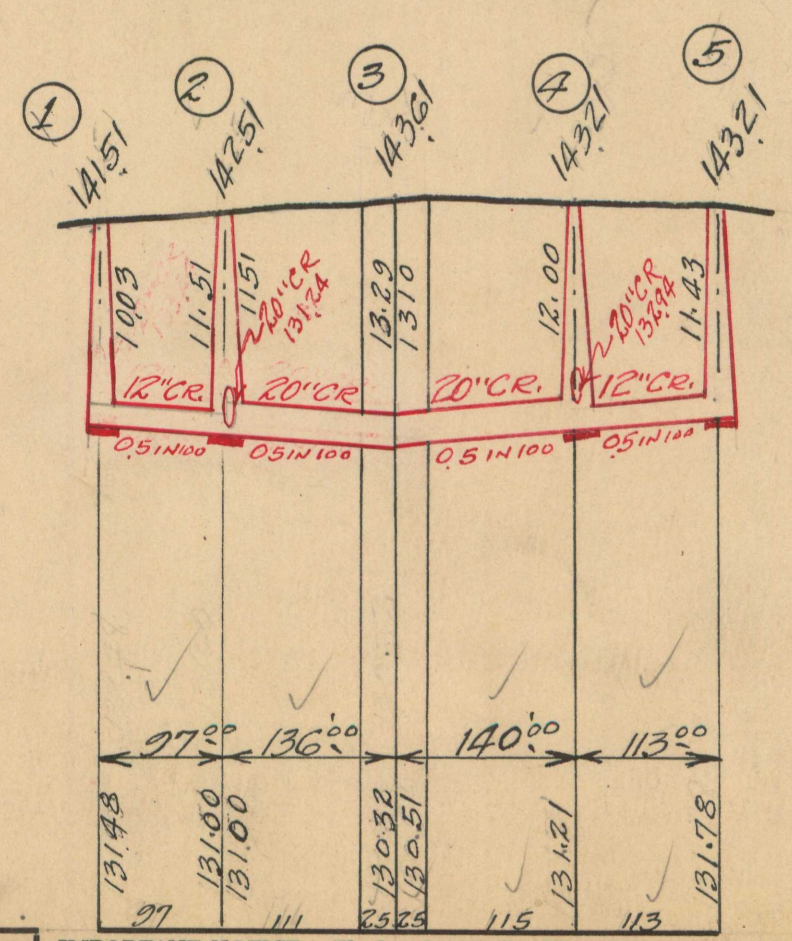 1 2 3 4 5
141.51 142.51 143.61 143.21 143.21
10.03 11.51 11.51 13.29 13.10 12.00 11.43
20"CR 131.24
20"CR 132.94
12"CR. 20"CR 20"CR. 12"CR.
0.5 IN 100 0.5 IN 100 0.5 IN 100 0.5 IN 100
97.00 136.00 140.00 113.00
131.48 131.00 131.00 130.32 130.51 131.21 131.78
97 111 25 25 115 113